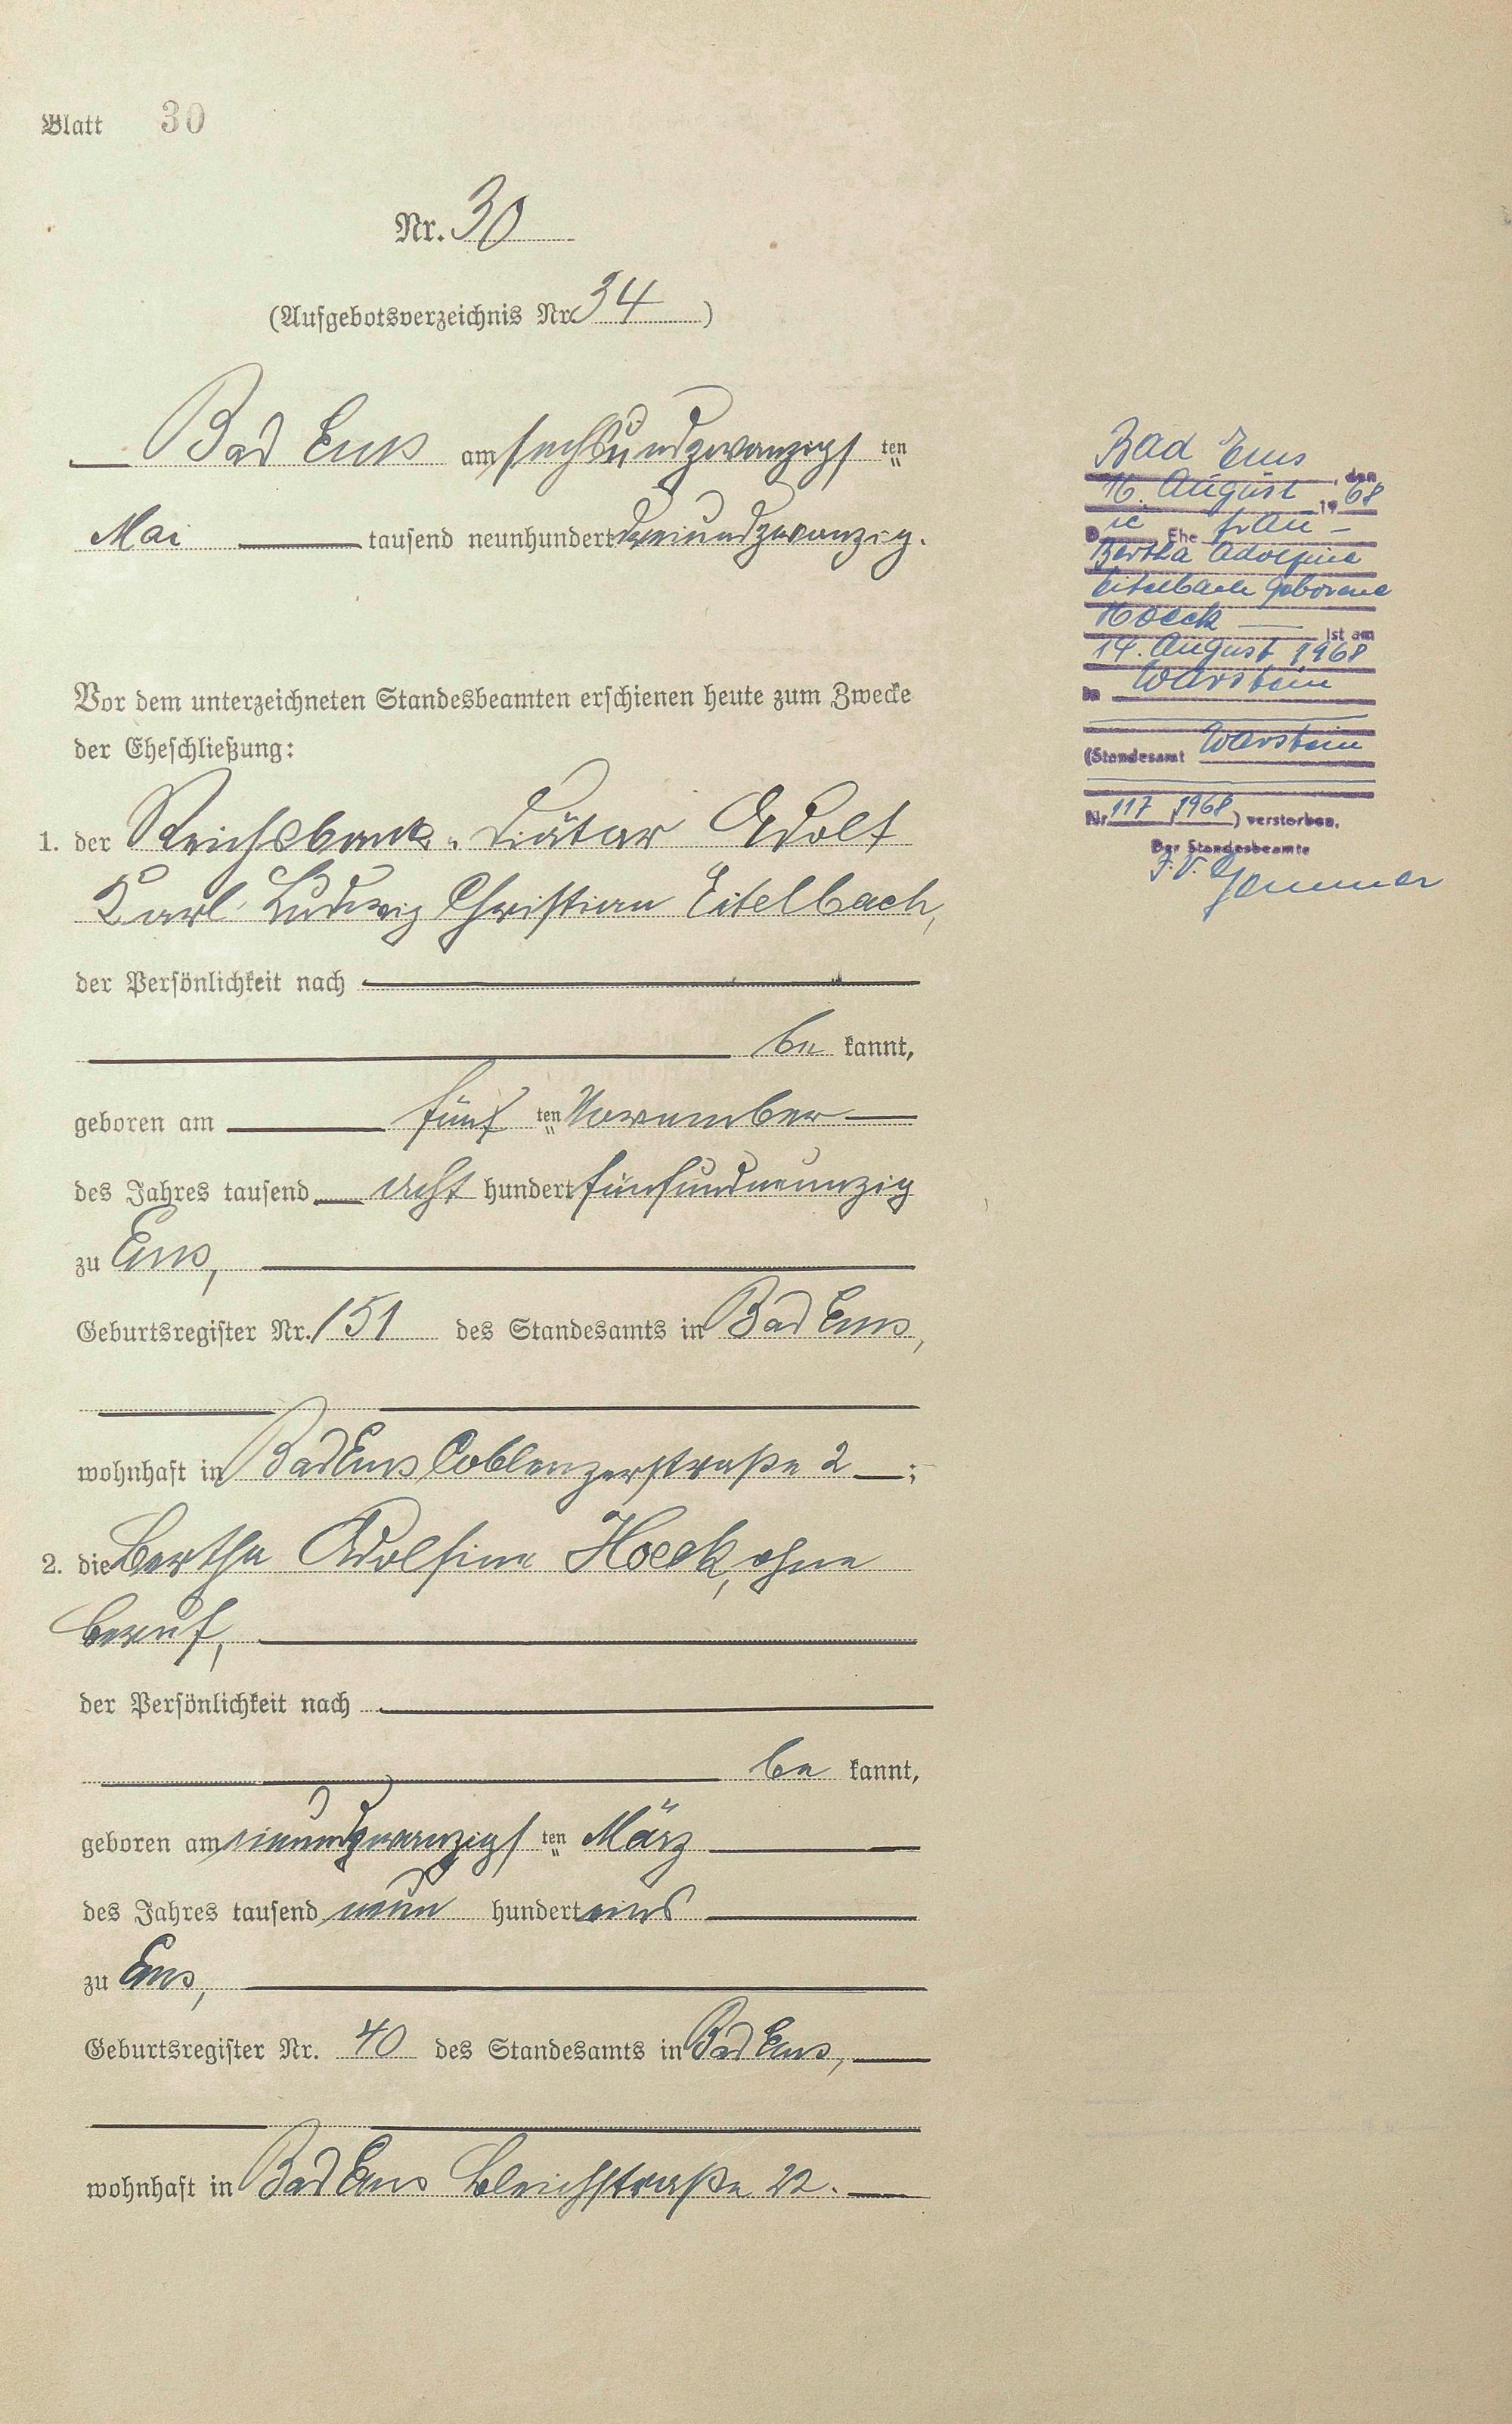 Blatt 30
Nr. 30
(Aufgebotsverzeichnis Nr. 34)
Bad Ems am sechsundzwanzigsten
Mai tausend neunhundert dreiundzwanzig.
Vor dem unterzeichneten Standesbeamten erschienen heute zum Zwecke
der Eheschließung:
1. der Reichsbank-Diätar Adolf
Karl Ludwig Christian Eitelbach,
der Persönlichkeit nach
be kannt,
geboren am fünf ten November
des Jahres tausend acht hundert fünfundneunzig
zu Ems,
Geburtsregister Nr. 151 des Standesamts in Bad Ems,
wohnhaft in Bad Ems Coblenzerstraße 2;
2. die Bertha Adolfine Hoeck, ohne
Beruf,
der Persönlichkeit nach
be kannt,
geboren am neunundzwanzigsten März
des Jahres tausend neun hundert eins
zu Ems,
Geburtsregister Nr. 40 des Standesamts in Bad Ems,
wohnhaft in Bad Ems Bleichstraße 22.
Bad Ems, den
16. August 1968
Die Ehefrau
Bertha Adolfine
Eitelbach geborene
Hoeck ist am
14. August 1968
in Warstein
(Standesamt Warstein
Nr. 117/1968) verstorben.
Der Standesbeamte
J.V.